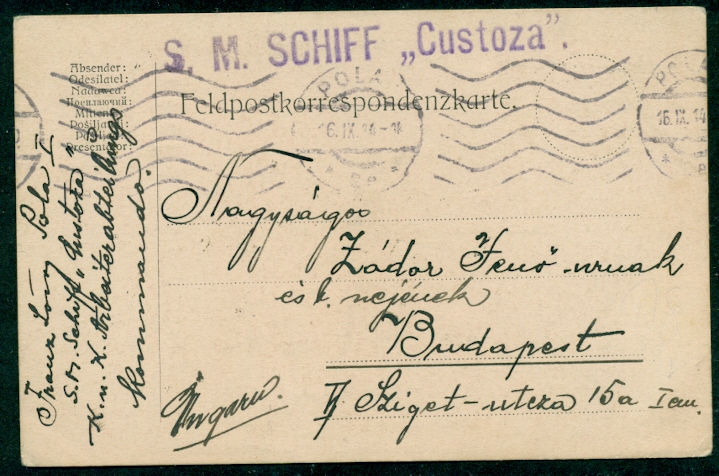 S. M. SCHIFF „Custoza".
Absender:
Odesílatel:
Nadawca:
Посилаючий:
Mitten
Pošiljatelj
Presentor:
POLA
16.IX.14
Feldpostkorrespondenzkarte.
POLA
16.IX.14
Nagyságos
Zádor Jenő urnak
és b. nejének
Budapest
Sziget-utcza 15a I em.
Ungarn.
Franz Pola I
S.M. Schiff „Custoza"
K. u. K. Arbeiterabteilungs
Kommando.